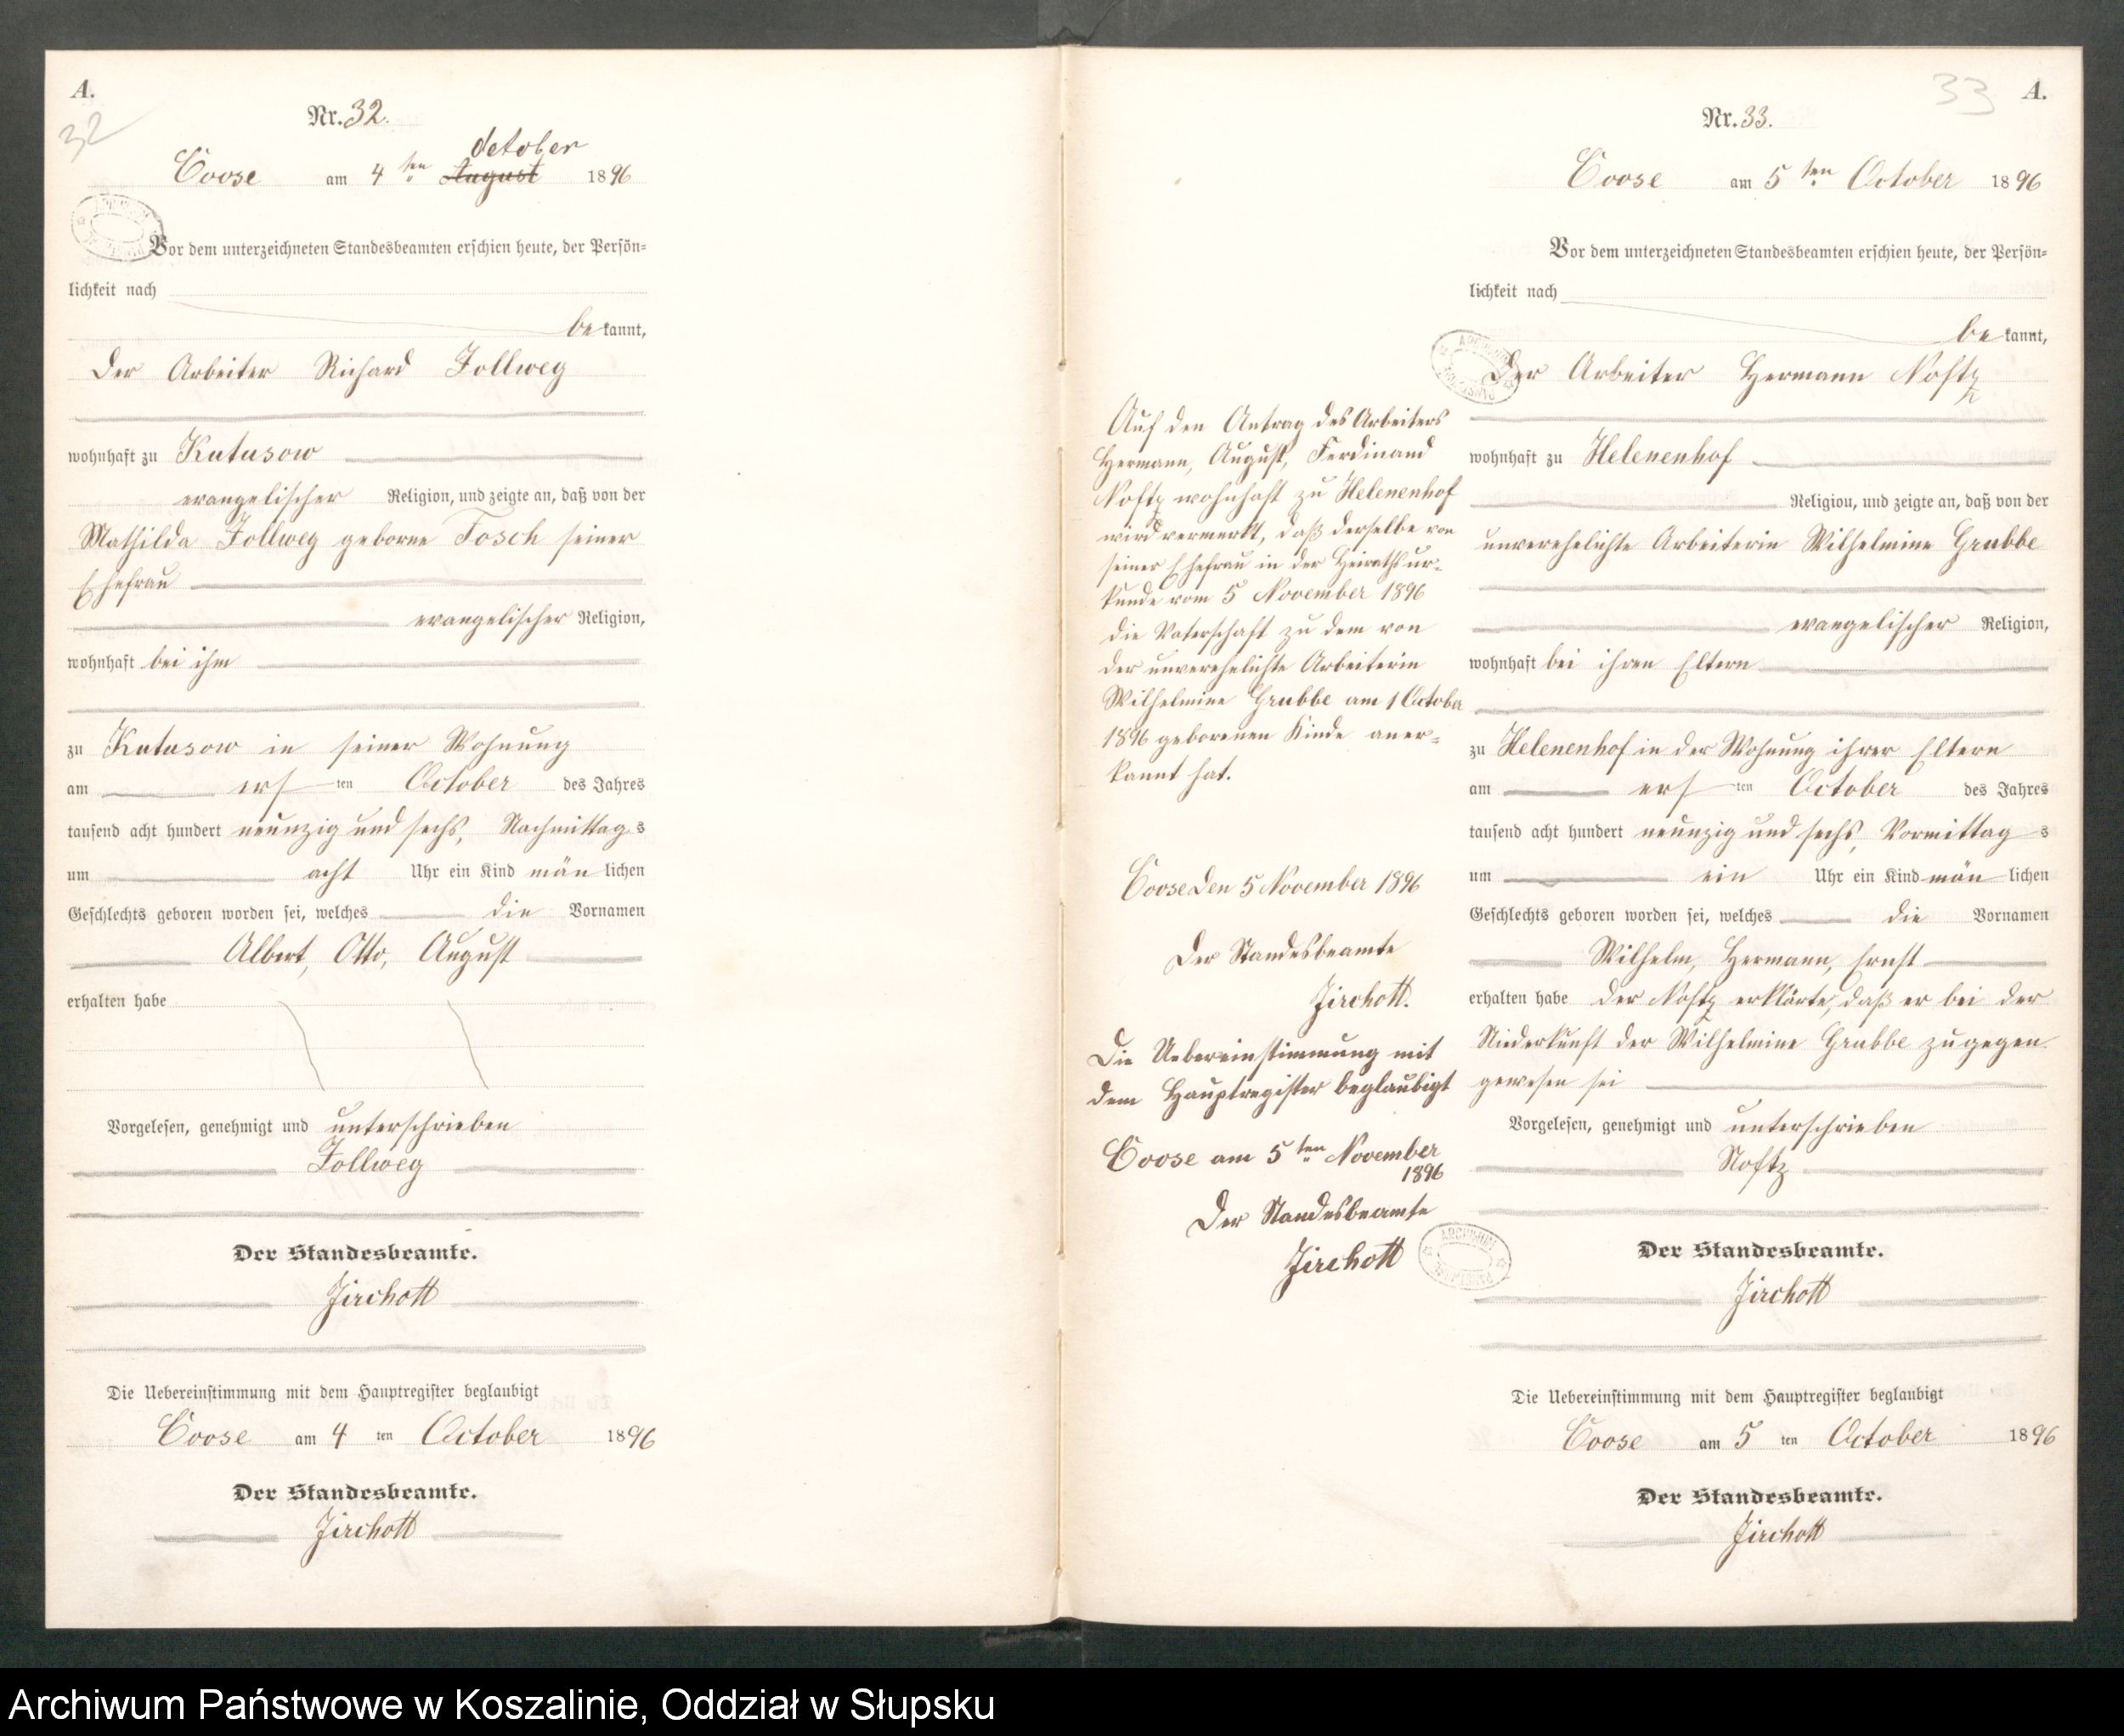 A.
32
Nr. 32.
October
Coose am 4 ten August 1896
Vor dem unterzeichneten Standesbeamten erschien heute, der Persön=
lichkeit nach
be kannt,
der Arbeiter Richard Follweg
wohnhaft zu Kutusow
evangelischer Religion, und zeigte an, daß von der
Mathilda Follweg geborne Tosch seiner
Ehefrau
evangelischer Religion,
wohnhaft bei ihm
zu Kutusow in seiner Wohnung
am ers ten October des Jahres
tausend acht hundert neunzig und sechs, Nachmittag s
um acht Uhr ein Kind män lichen
Geschlechts geboren worden sei, welches die Vornamen
Albert, Otto, August
erhalten habe
Vorgelesen, genehmigt und unterschrieben
Follweg
Der Standesbeamte.
Jirchott
Die Uebereinstimmung mit dem Hauptregister beglaubigt
Coose am 4 ten October 1896
Der Standesbeamte.
Jirchott
33
A.
Nr. 33.
Coose am 5 ten October 1896
Vor dem unterzeichneten Standesbeamten erschien heute, der Persön=
lichkeit nach
be kannt,
Der Arbeiter Hermann Noftz
wohnhaft zu Helenenhof
Religion, und zeigte an, daß von der
unverehelichte Arbeiterin Wilhelmine Grubbe
evangelischer Religion,
wohnhaft bei ihren Eltern
zu Helenenhof in der Wohnung ihrer Eltern
am ers ten October des Jahres
tausend acht hundert neunzig und sechs, Vormittag s
um ein Uhr ein Kind män lichen
Geschlechts geboren worden sei, welches die Vornamen
Wilhelm, Hermann, Ernst
erhalten habe der Noftz erklärte, daß er bei der
Niederkunft der Wilhelmine Grubbe zugegen
gewesen sei
Vorgelesen, genehmigt und unterschrieben
Noftz
Der Standesbeamte.
Jirchott
Die Uebereinstimmung mit dem Hauptregister beglaubigt
Coose am 5 ten October 1896
Der Standesbeamte.
Jirchott
Auf den Antrag des Arbeiters
Hermann, August, Ferdinand
Noftz wohnhaft zu Helenenhof
wird vermerkt, daß derselbe von
seiner Ehefrau in der Heirathsur=
kunde vom 5 November 1896
die Vaterschaft zu dem von
der unverehelichte Arbeiterin
Wilhelmine Grubbe am 1 October
1896 geborenen Kinde aner=
kannt hat.
Coose den 5 November 1896
Der Standesbeamte
Jirchott.
Die Uebereinstimmung mit
dem Hauptregister beglaubigt
Coose am 5 ten November
1896
Der Standesbeamte
Jirchott
Archiwum Państwowe w Koszalinie, Oddział w Słupsku